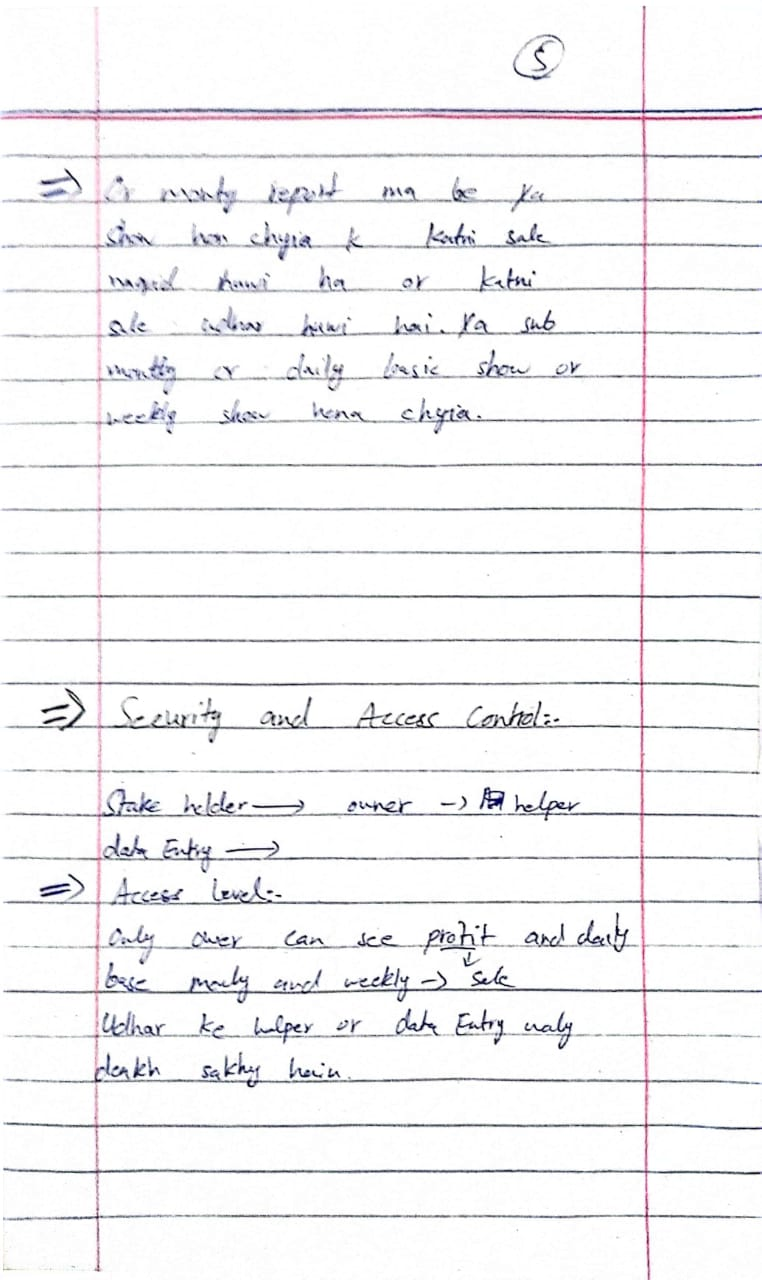 5
=> Or monty report ma be ya
show hon chyia k katni sale
naqid huwi ha or katni
sale udhar huwi hai. Ya sub
monttiy or daily basic show or
weekly show hona chyia.
=> Security and Access Control:-
Stake helder → owner → helper
data Entry →
=> Access Level:-
Only ower can see profit and daily
base monly and weekly → ↓ sale
Udhar ke helper or data Entry waly
deakh sakhy hain.